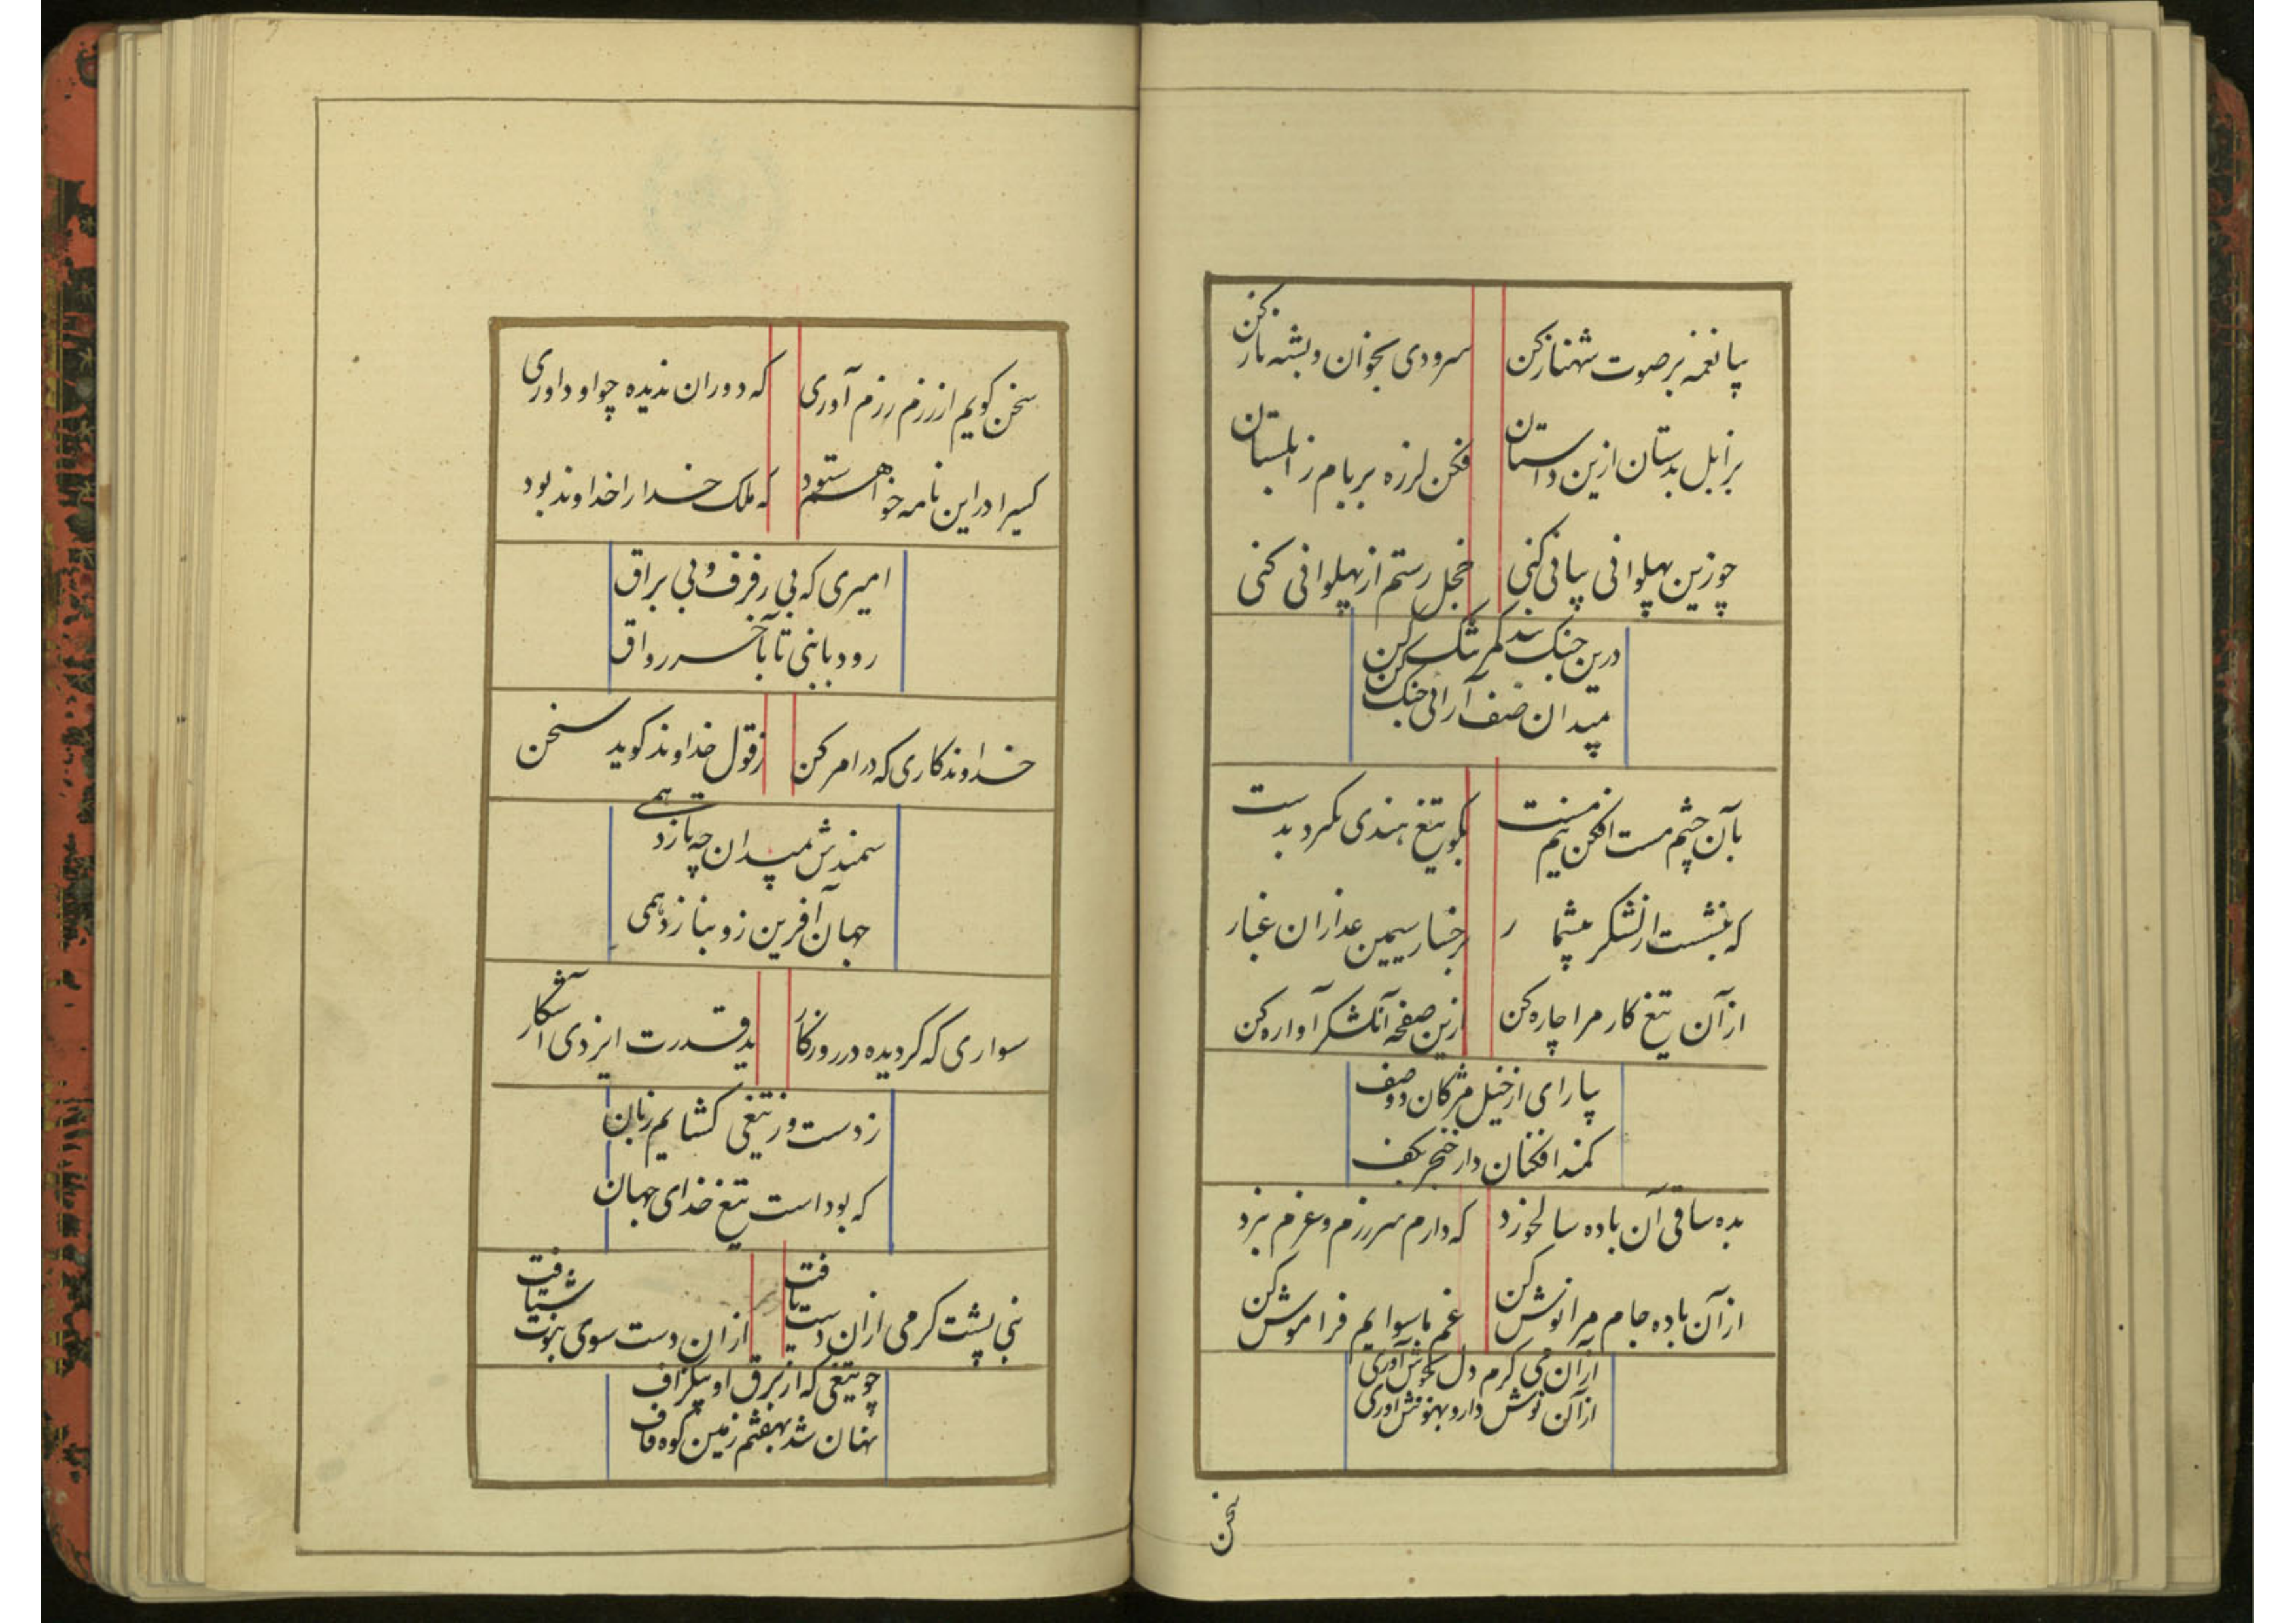 بیا نغمه بر صوت شهناز کن سرودی بخوان و بشهناز کن
بزابل بدستان ازین داستان فکن لرزه بر بام زابلستان
چو زین پهلوانی بیانی کنی خجل رستم از پهلوانی کنی
درین جنک بند کمر تنک کن
بمیدان صف آرائی جنک کن
بآن چشم مست افکن نیم مست بکو تیغ هندی بکیرد بدست
که بنشست از لشکر بیشمار برخسار سیمین عذاران غبار
از آن تیغ کار مرا چاره کن ازین صفحه آنلشکر آواره کن
بیارای از خیل مژکان دو صف
کمند افکنان دار خنجر بکف
بده ساقی آن باده سالخورد که دارم سر رزم و عزم نبرد
از آن باده جام مرا نوش کن غم ماسوایم فراموش کن
از آن می کرم دل بجوش آوری
از آن نوش دارو بهوش آوری
سخن
سخن کویم از رزم رزم آوری که دوران ندیده چو او داوری
کسیرا در این نامه خواهم ستود که ملک خدا را خداوند بود
امیری که بی رفرف و بی براق
رود با نبی تا بآخر رواق
خداوندکاری که در امر کن ز قول خداوند کوید سخن
سمندش بمیدان چه تازد همی
جهان آفرین زو بنازد همی
سواری که کردیده در روزکار ید قدرت ایزدی آشکار
ز دست و ز تیغی کشایم زبان
که بود است تیغ خدای جهان
نبی پشت کرمی ازان دست یافت ازان دست سوی نبوت شتافت
چو تیغی که از برق او بیکزاف
نهان شد بهفتم زمین کوه قاف